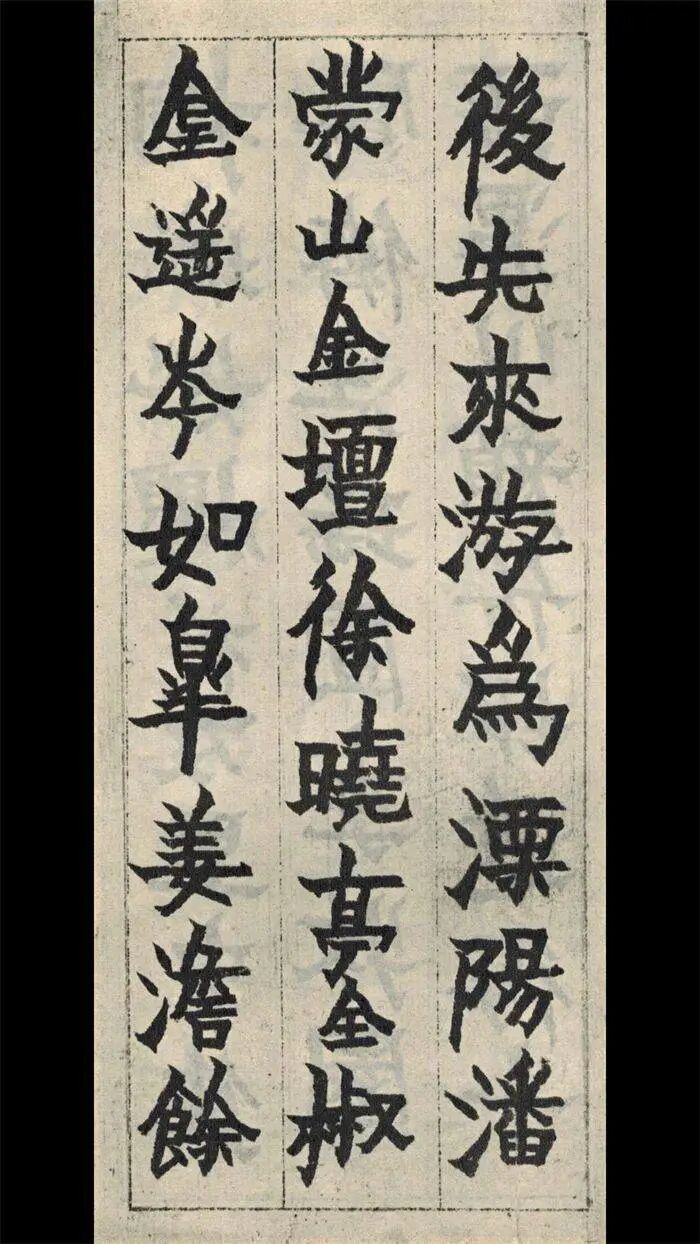 後先來游爲溧陽潘
蒙山金壇徐曉亭全椒
金遙岑如皋姜澹餘